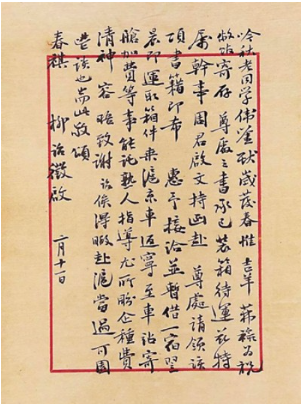 冷秋老同学伟鉴献岁发春惟 吉羊茀禄为祝
敝馆寄存 尊处之书承已装箱待运兹特
属干事周君启文持函赴 尊处请领该
项书籍即希 惠予接洽并暂借一宿翌
晨即运取箱件乘沪京车返宁至车站寄
舱加费等事能託熟人指导尤所盼企种费
清神容晤致谢诒徵得暇赴沪当过可园
丰谈也耑此敬颂
春祺 柳诒徵启 二月十一日